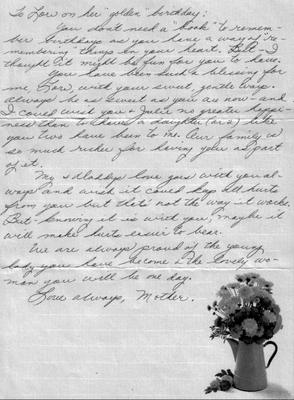 To Lori on her "golden" birthday:
You don't need a "book" to remem-
ber birthdays as you have a way of re-
membering things in your heart. But - I
thought it might be fun for you to have.
You have been such a blessing for
me, Lori, with your sweet, gentle ways.
Always be as sweet as you are now - and
I could wish you + Julie no greater happi-
ness than to have a daughter (or s) like
you two have been to me. Our family is
so much richer for having you as part
of it.
My + Daddy's love goes with you al-
ways and wish it could keep all hurts
from you but that's not the way it works.
But knowing it is with you, maybe it
will make hurts easier to bear.
We are always proud of the young
lady you have become + the lovely wo-
man you will be one day.
Love always, Mother.